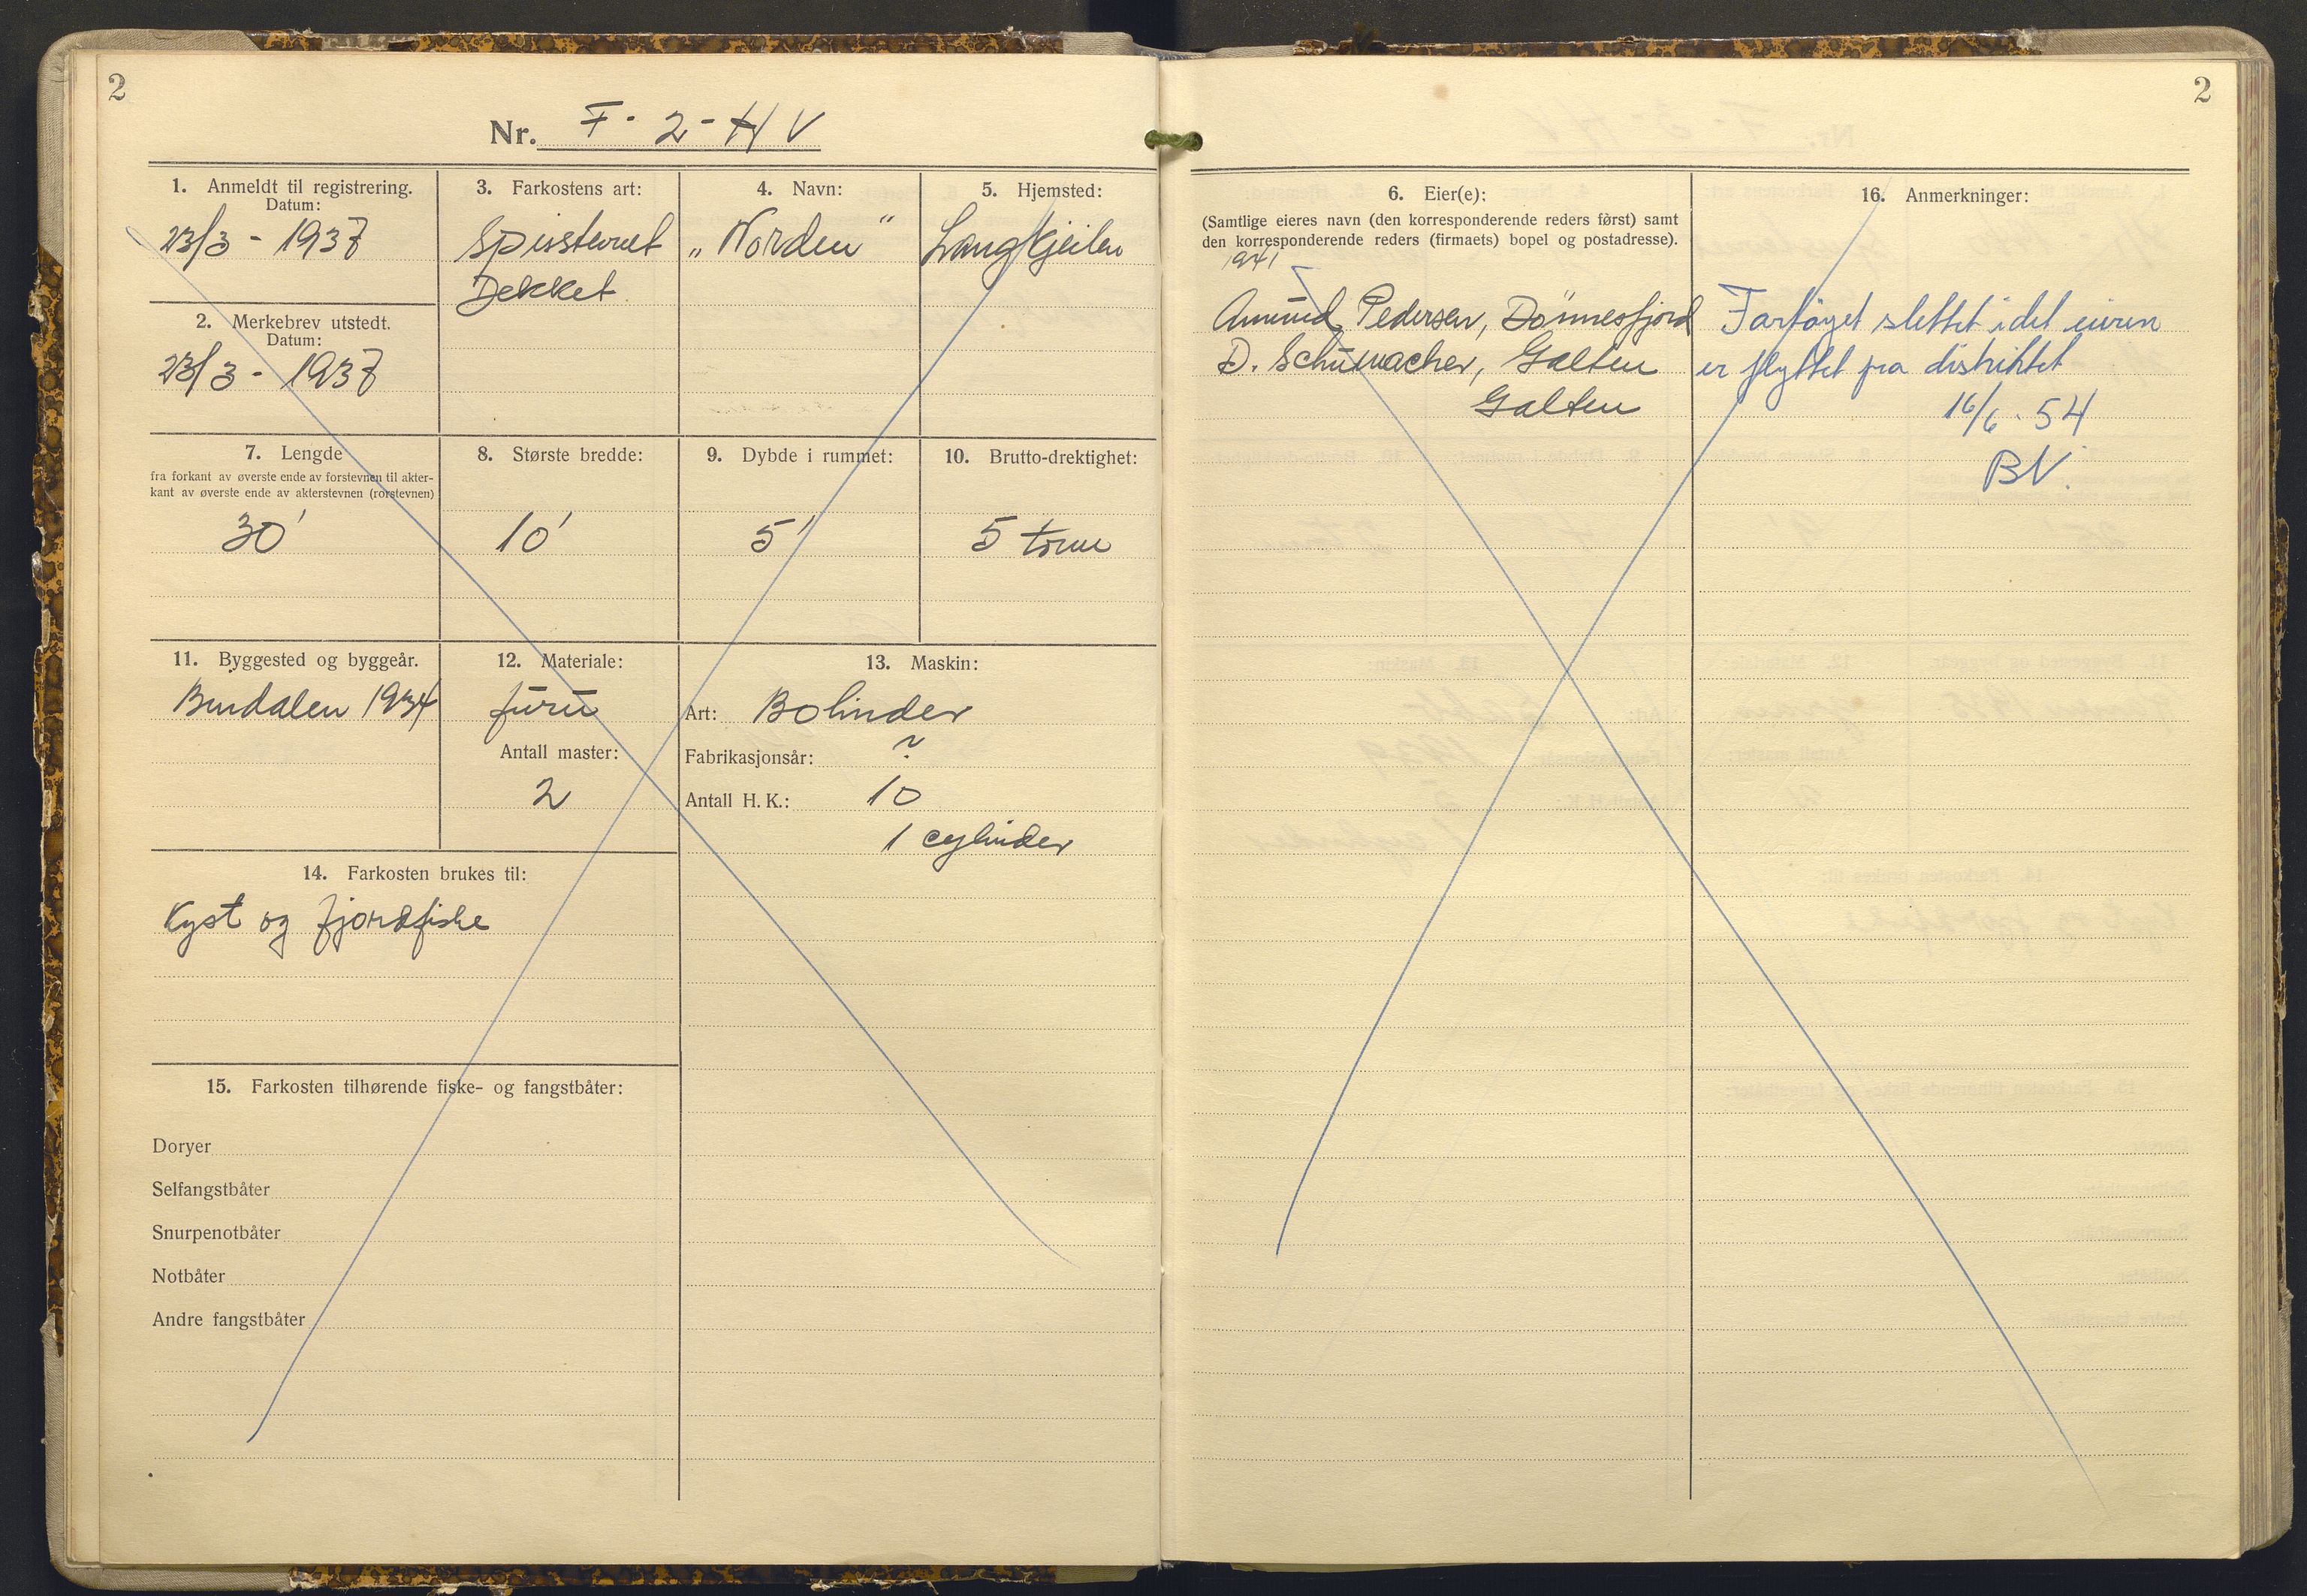 2
Nr. F - 2 - H V
1. Anmeldt til registrering.
Datum:
23/3 - 1937
2. Merkebrev utstedt.
Datum:
23/3 - 1937
3. Farkostens art:
Spisstevnet
Dekket
4. Navn:
„Norden“
5. Hjemsted:
Langkjeilen
7. Lengde
fra forkant av øverste ende av forstevnen til akter-
kant av øverste ende av akterstevnen (rorstevnen)
30'
8. Største bredde:
10'
9. Dybde i rummet:
5'
10. Brutto-drektighet:
5 tonn
11. Byggested og byggeår.
Bindalen 1934
12. Materiale:
furu
Antall master:
2
13. Maskin:
Art: Bolinder
Fabrikasjonsår: ?
Antall H. K.: 10
1 cylinder
14. Farkosten brukes til:
Kyst og fjordfiske
15. Farkosten tilhørende fiske- og fangstbåter:
Doryer
Selfangstbåter
Snurpenotbåter
Notbåter
Andre fangstbåter
2
6. Eier(e):
(Samtlige eieres navn (den korresponderende reders først) samt
den korresponderende reders (firmaets) bopel og postadresse).
1941
Amund Pedersen, Dönnesfjord
D. Schumacher, Galten
Galten
16. Anmerkninger:
Fartøyet slettet idet eieren
er flyttet fra distriktet
16/6 - 54
BN.